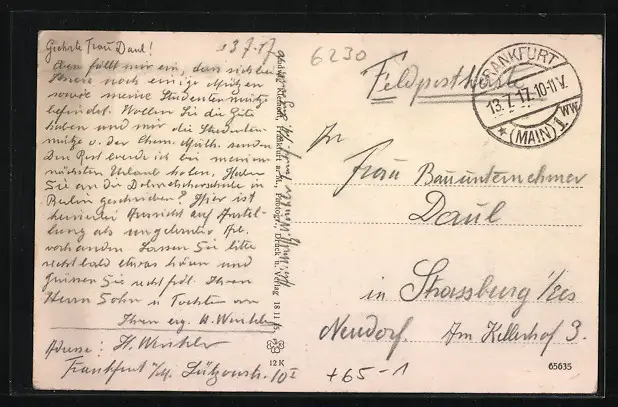 13.7.17
Geehrte Frau Daul!
Eben fällt mir ein, dass sich bei
Ihnen noch einige Mützen
sowie meine Studentenmütze
befindet. Wollen Sie die Güte
haben und mir die Studenten-
mütze u. der Chem. Müth. senden
Den Rest werde ich bei meinem
nächsten Urlaub holen. Haben
Sie an die Dolmetscherschule in
Berlin geschrieben? Hier ist
keinerlei Aussicht auf Anstel-
lung als ungelernter Arb.
vorhanden. Lassen Sie bitte
recht bald etwas hören und
Grüssen Sie recht frdl. Ihren
Herrn Sohn u. Tochter von
Ihrem erg. H. Winkler
Adresse: H. Winkler
Frankfurt a/M. Lützowstr. 10 I
Gebrüder Klement, Frankfurt a. M., Photogr., Druck u. Verlag 18 11 15
12 K
6230
Feldpostkarte
FRANKFURT
13.7.17.10-11V.
* (MAIN) 1
An
Frau Bauunternehmer
Daul
in Strassburg i/Els
Neudorf. Am Kellerhof 3.
+65-1
65635